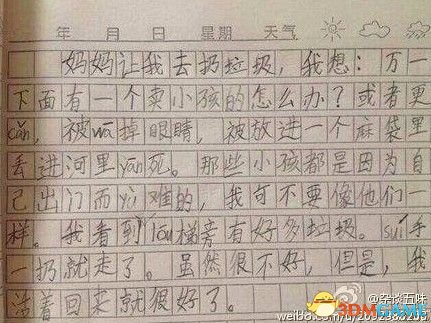 年 月 日 星期 天气
妈妈让我去扔垃圾，我想：万一
下面有一个卖小孩的怎么办？或者更
cǎn，被wā掉眼睛，被放进一个麻袋里
丢进河里yān死。那些小孩都是因为自
己出门而yù难的，我可不要像他们一
样。我看到lóu梯旁有好多垃圾。suí手
一扔就走了。虽然很不好，但是，我
活着回来就很好了。
@杂谈五味
3DMGAME